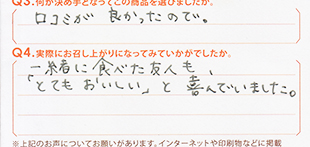 Q3.何が決め手となってこの商品を選びましたか。
口コミが 良かったので。
Q4.実際にお召し上がりになってみていかがでしたか。
一緒に食べた友人も、
「とても おいしい」と 喜んでいました。
※上記のお声についてお願いがあります。インターネットや印刷物などに掲載